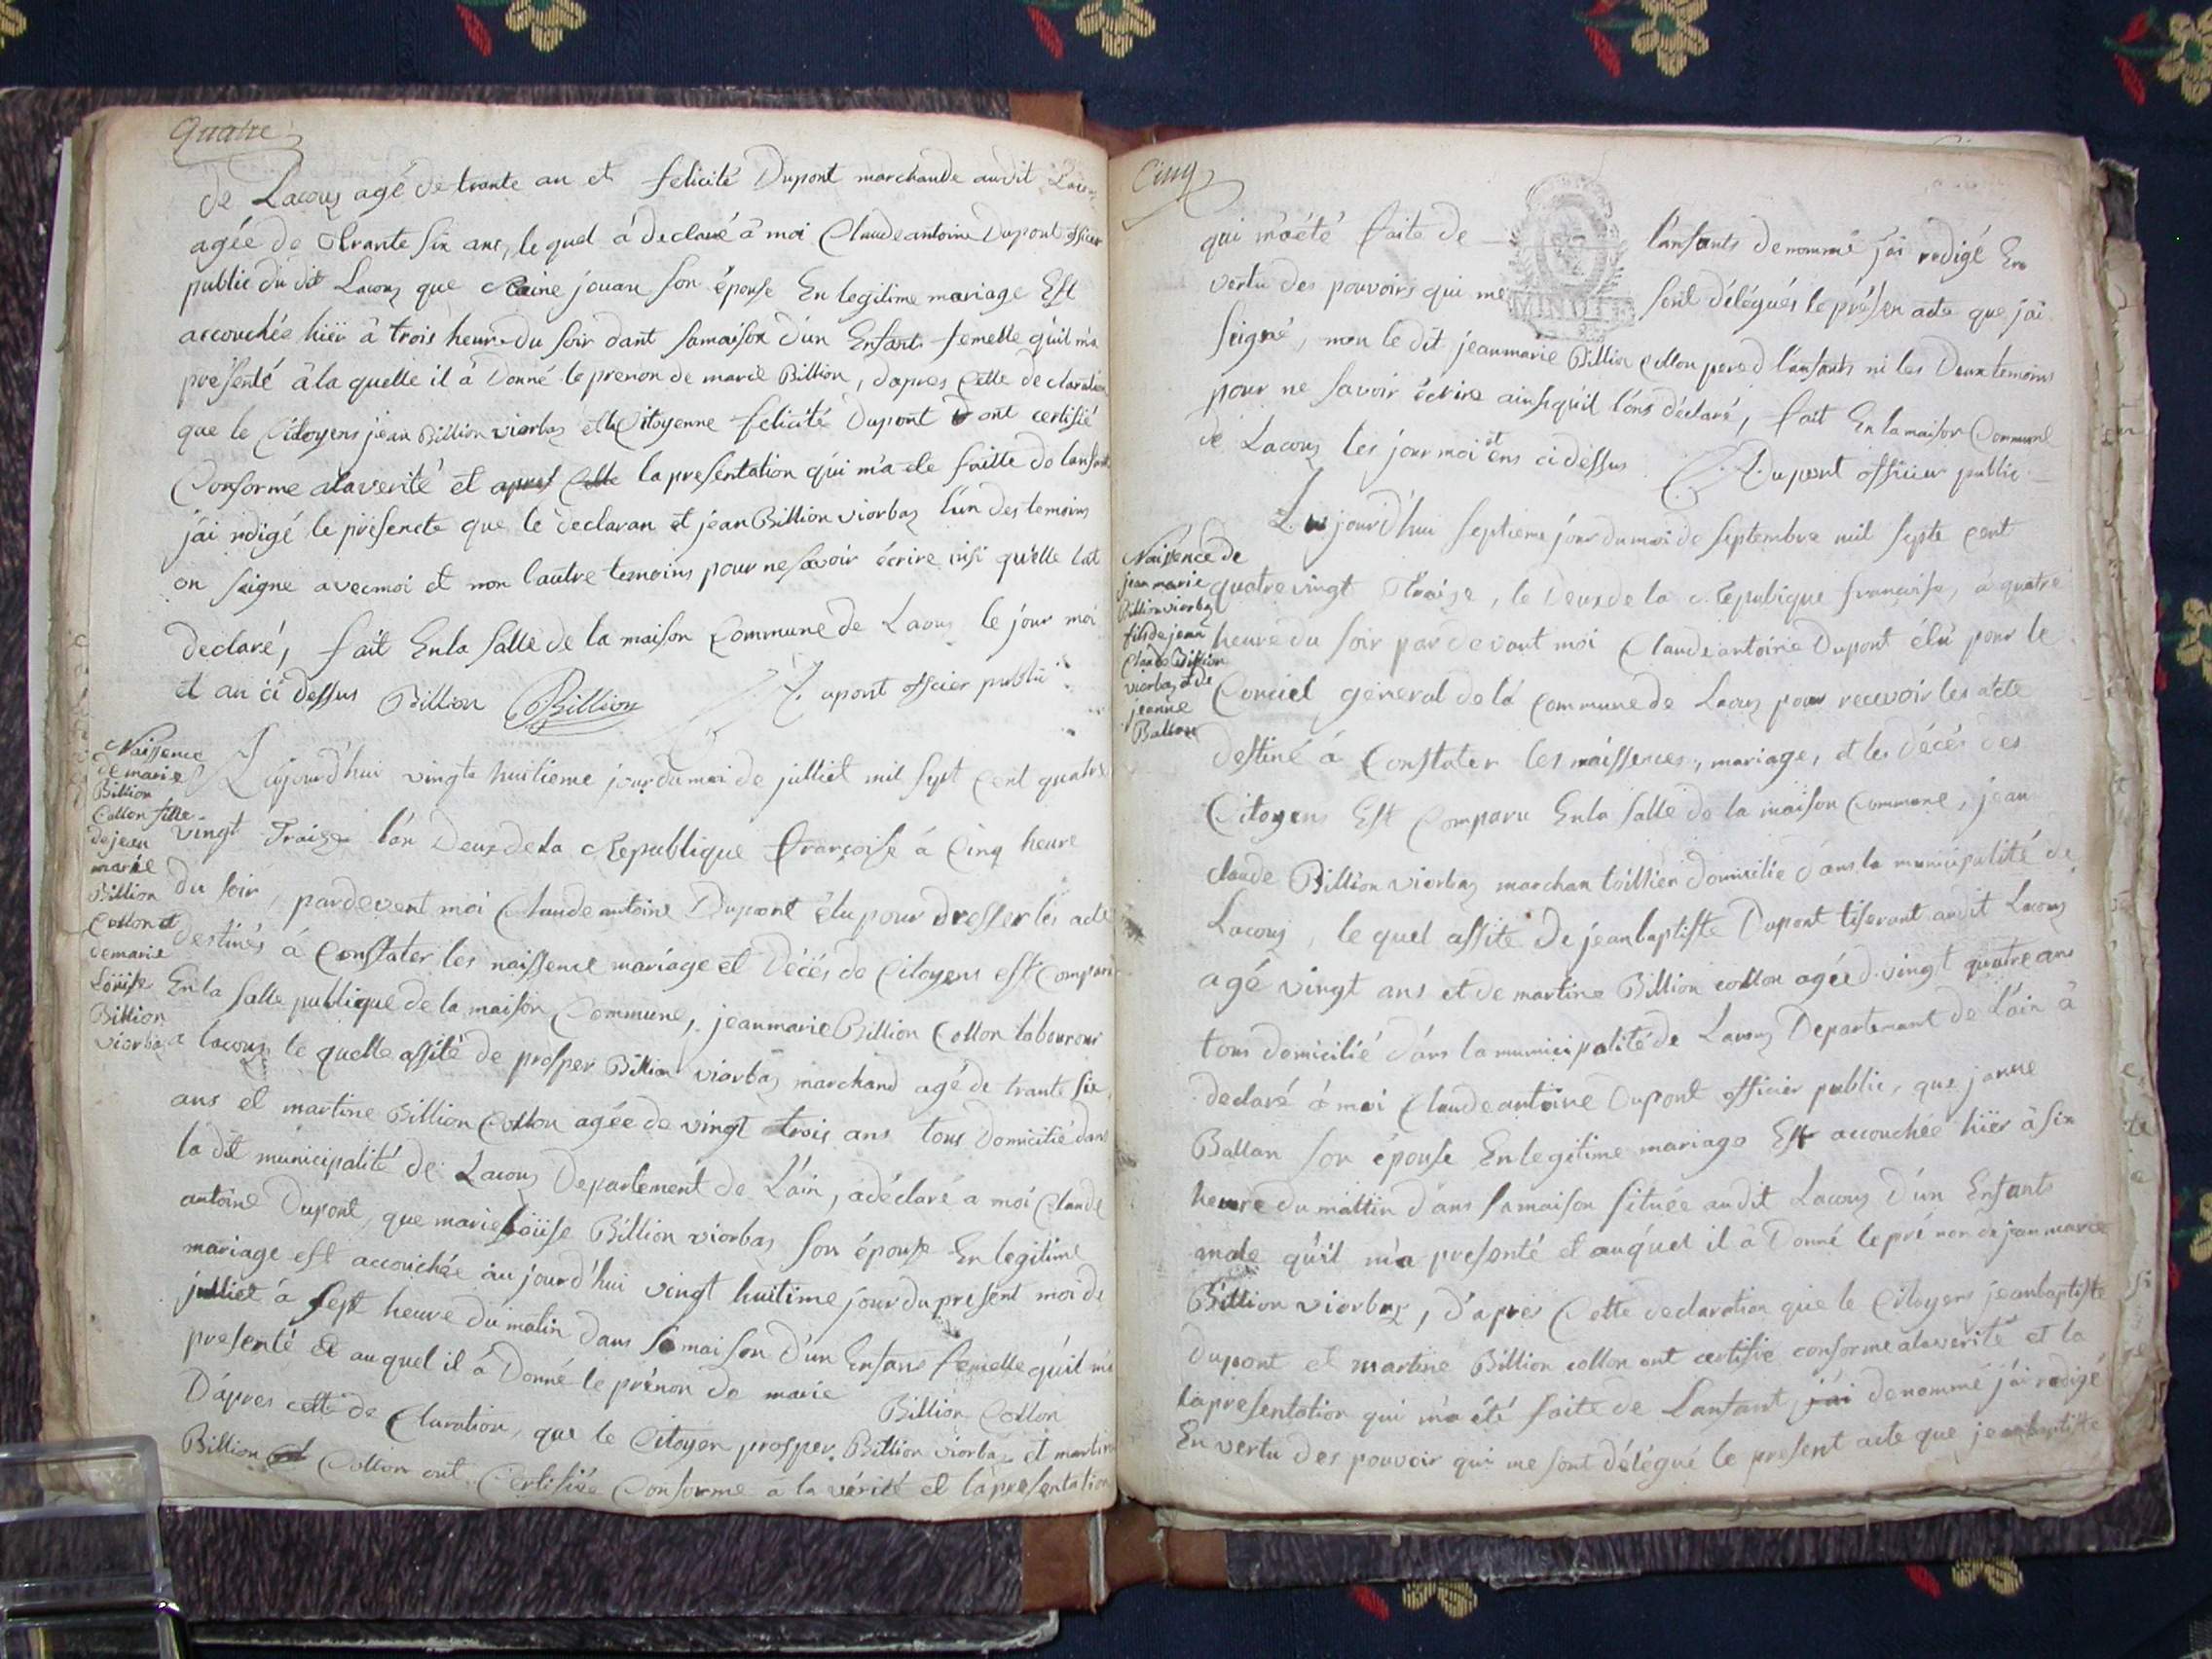 Quatre
de Lacoux agé de trante an et felicité Dupont marchande audit Lacoux
agée de trante six ans, le quel á declaré â moi Claude antoine Dupont officier
public du dit Lacoux que Reine jouan son épouse En legitime mariage Est
accouchée hiër â trois heure du soir dant samaison d'un Enfant femelle qúil m'a
présenté âla quelle il â Donné le prenon de marie Billion, dapres Cette declaration
que le Citoyens jean Billion viorbaz et la Citoyenne felicité Dupont ont certifié
Conforme alaverité et apres Cette la presentation qúi m'a ete faitte de lanfant
j'ai rdigé le présencte que le declaran et jean Billion viorbaz l'un des temoins
on seigne avec moi et non lautre temoins pour ne savoir écrire insi qu'elle lat
declaré, fait Enla salle de la maison Commune de Lacoux le jour moi
et an ci dessus Billion Billion Dupont officier public
Naissence
de marie
Billion
Collon fille
de jean
marie
Billion
Collon et
de marie
Loüise
Billion
viorbaz
Laujourd'hui vingte huitieme jour du moi de julliet mil sept Cent quatre
vingt Traize l'an Deux de la Republique françoise á Cinq heure
du soir, pardevent moi Claude antoine Dupont élu pour dresser les acte
destinés á Constater les naissence mariage et Décés de Citoyens est comparu
En la salle publique de la maison Commune, jean marie Billion Collon laboureur
a lacoux le quelle assité de prosper Billion viorbaz marchand agé de trante six
ans et martine Billion Collon agée de vingt trois ans tous Domicilié dans
la dit municipalité de Lacoux Departement de L'ain, a déclaré a moi Claude
antoine Dupont, que marie Loüise Billion viorbaz son épouse En legitime
mariage est accouchée au jourd'hui vingt huitime jour du present moi de
julliet á sept heure du matin dans sa maison d'un Enfans femelle qúil m'a
presenté et au quel il á Donné le prénon de marie Billion Collon
D'apres cette de Claration, que le Citoyen prosper Billion viorbaz et martine
Billion et Collon ont Certifiée Conforme a la vérité et la presentation
Cinq
qui m'a été faite de l'anfants denommé j'ai redigé En
vertu des pouvoirs qui me sont délégués le présen acte que j'ai
MINUTE
seigné, non le dit jean marie Billion Collon pere d l'anfants ni les Deux temoins
pour ne savoir écrire ainsi qúil l'ons déclaré, fait En la maison Commune
de Lacoux les jour moi et ens ci dessus Dupont officier public
Naissence de
jean marie
Billion viorbaz
fils de jean
Claude Billion
viorbaz et de
jeanne
Ballan
Lujourd'hui septieme jour du moi de septembre mil septe cent
quatre vingt Traize, le Deux de la Republique françoise, a quatre
heure du soir par devant moi Claude antoine Dupont élú pour le
Conciel géneral de lá Commune de Lacoux pour recevoir les acte
destiné á Constater les naissences, mariage, et les décés des
Citoyens Est Comparu Enla salle de la maison Commune, jean
claude Billion viorbaz marchan toillier domicilié d'ans la municipalité de
Lacoux, le quel assité de jean baptiste Dupont tiserant audit Lacoux
agé vingt ans et de martine Billion collon agée d vingt quatre ans
tous domicilié d'ans la municipalité de Lacoux Departemant de L'ain á
declaré á moi Claude antoine Dupont officier public, que janne
Ballan son épouse En legitime mariage Est accouchée hiër á six
heure du mattin d'ans samaison située au dit Lacoux d'un Enfants
male qúil m'a presenté et auquel il á Donné le pré non de jean marie
Billion viorbaz, d'apres Cette declaration que le Citoyens jean baptiste
Dupont et martine Billion collon ont certifie conforme alaverité et la
la presentation qui m'a été faite de Lanfant, j'ai denommé j'ai redigé
En vertu des pouvoir qui me sont délégué le present acte que jean baptiste